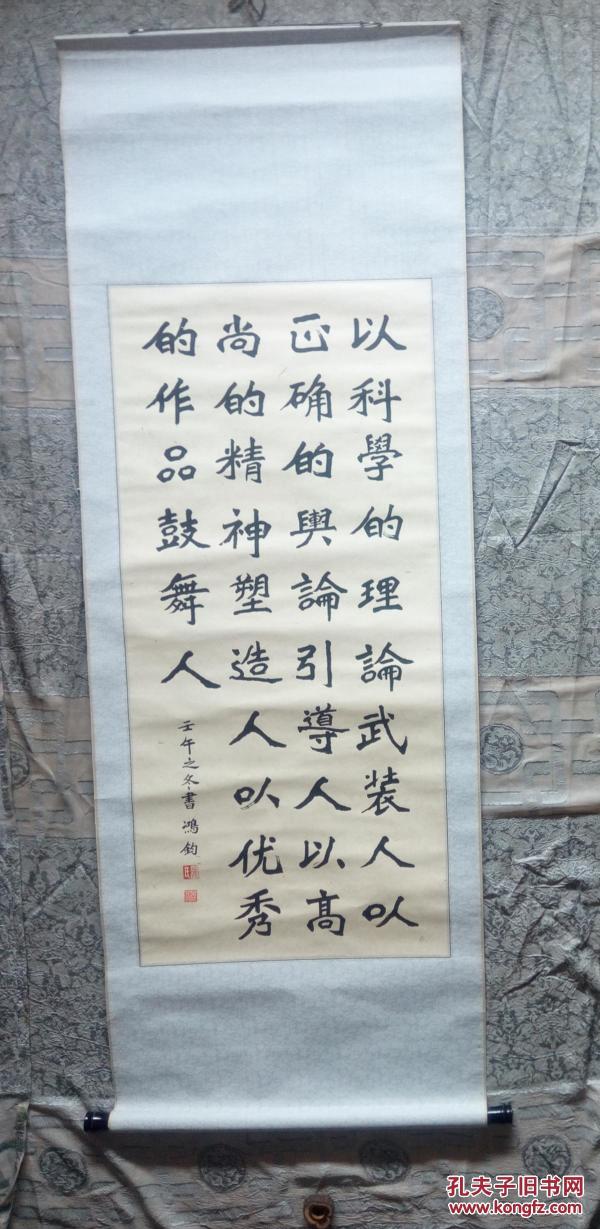 以科學的理論武装人以
正确的輿論引導人以高
尚的精神塑造人以优秀
的作品鼓舞人
壬午之冬書鴻鈞
孔夫子旧书网
www.kongfz.com